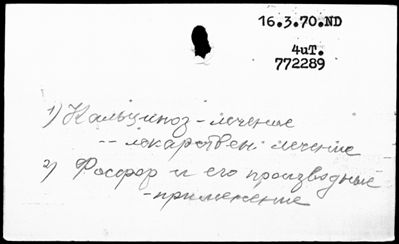 16.3.70.ND
4иТ.
772289
1) Кальциноз - лечение
-- лекарствен. лечение
2) Фосфор и его производные
- применение